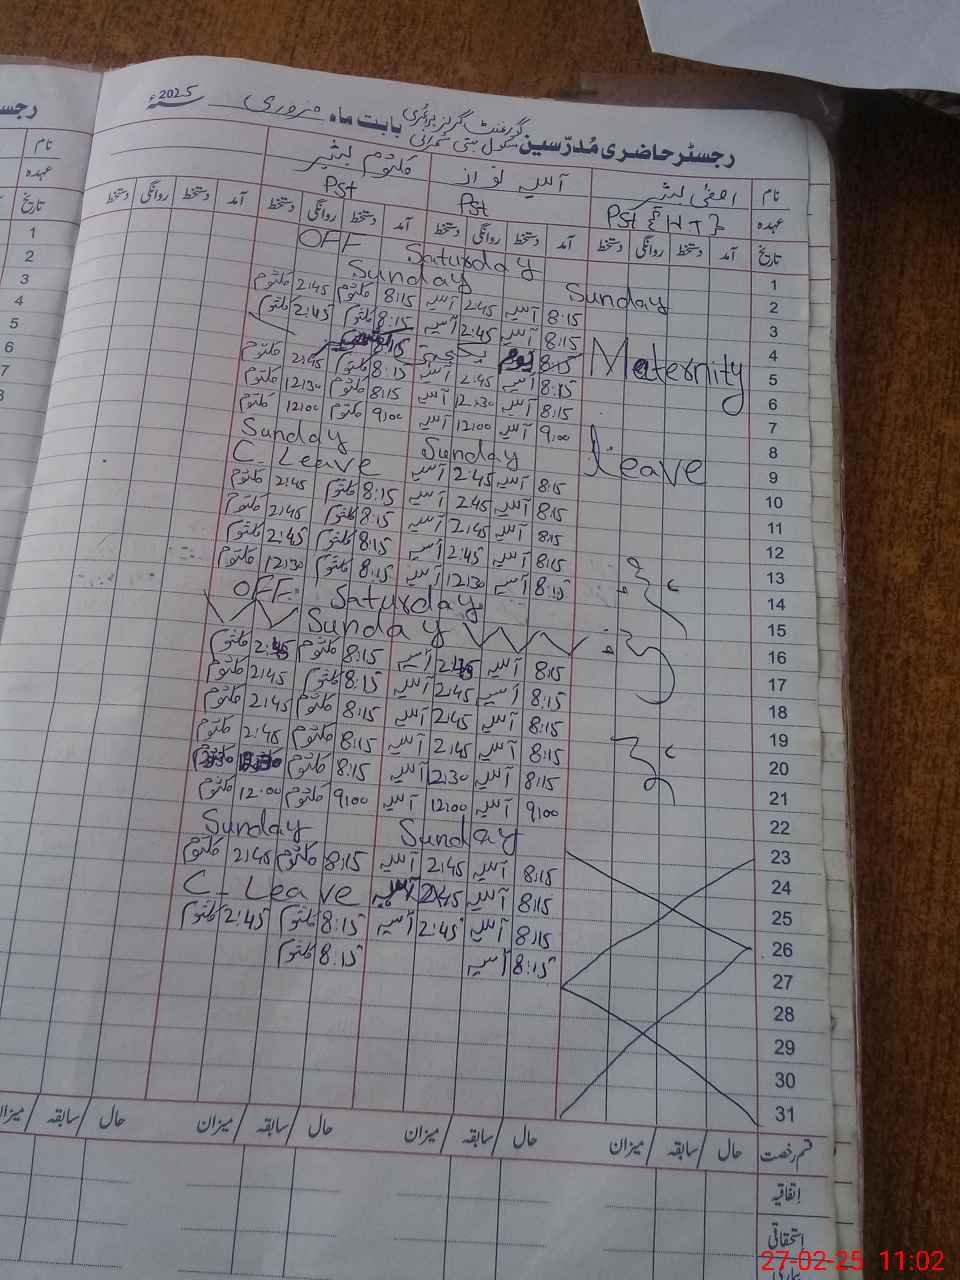 رجسٹر حاضری مُدرّسین گورنمنٹ گرلز پرائمری سکول بستی بابت ماہ فروری سنہ 2025ء
نام آسیہ نواز کلثوم
عہدہ Pst {HT} Pst Pst
تاریخ آمد دستخط روانگی دستخط آمد دستخط روانگی دستخط آمد دستخط روانگی دستخط آمد دستخط روانگی دستخط
1 Saturday OFF
2 Sunday Sunday
3 8:15 آسیہ 2:45 آسیہ 8:15 کلثوم 2:45 کلثوم
4 8:15 آسیہ 2:45 آسیہ 8:15 کلثوم 2:45 کلثوم
5 Maternity 8:15 یوم
6 8:15 آسیہ 2:45 آسیہ 8:15 کلثوم 2:45 کلثوم
7 8:15 آسیہ 12:30 آسیہ 8:15 کلثوم 12:30 کلثوم
8 9:00 آسیہ 12:00 آسیہ 9:00 کلثوم 12:00 کلثوم
9 leave Sunday Sunday
10 8:15 آسیہ 2:45 آسیہ C. Leave
11 8:15 آسیہ 2:45 آسیہ 8:15 کلثوم 2:45 کلثوم
12 8:15 آسیہ 2:45 آسیہ 8:15 کلثوم 2:45 کلثوم
13 8:15 آسیہ 2:45 آسیہ 8:15 کلثوم 2:45 کلثوم
14 8:15 آسیہ 12:30 آسیہ 8:15 کلثوم 12:30 کلثوم
15 Saturday OFF
16 Sunday
17 8:15 آسیہ 2:45 آسیہ 8:15 کلثوم 2:45 کلثوم
18 8:15 آسیہ 2:45 آسیہ 8:15 کلثوم 2:45 کلثوم
19 8:15 آسیہ 2:45 آسیہ 8:15 کلثوم 2:45 کلثوم
20 8:15 آسیہ 2:45 آسیہ 8:15 کلثوم 2:45 کلثوم
21 8:15 آسیہ 12:30 آسیہ 8:15 کلثوم
22 9:00 آسیہ 12:00 آسیہ 9:00 کلثوم 12:00 کلثوم
23 Sunday Sunday
24 8:15 آسیہ 2:45 آسیہ 8:15 کلثوم 2:45 کلثوم
25 8:15 آسیہ 2:45 آسیہ C. Leave
26 8:15 آسیہ 2:45 آسیہ 8:15 کلثوم 2:45 کلثوم
27 8:15 آسیہ 8:15 کلثوم
28
29
30
31
قسم رخصت حال / سابقہ / میزان حال / سابقہ / میزان حال / سابقہ / میزان حال / سابقہ / میزان
اتفاقیہ
استحقاقی
رجسٹر
نام
عہدہ
تاریخ
1
2
3
4
5
6
7
8
27-02-25 11:02